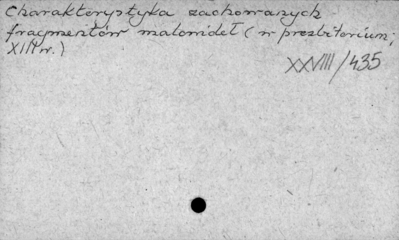 Charakterystyka zachowanych
fragmentów malowideł (w prezbiterium;
XIII w.)
XXVIII/435